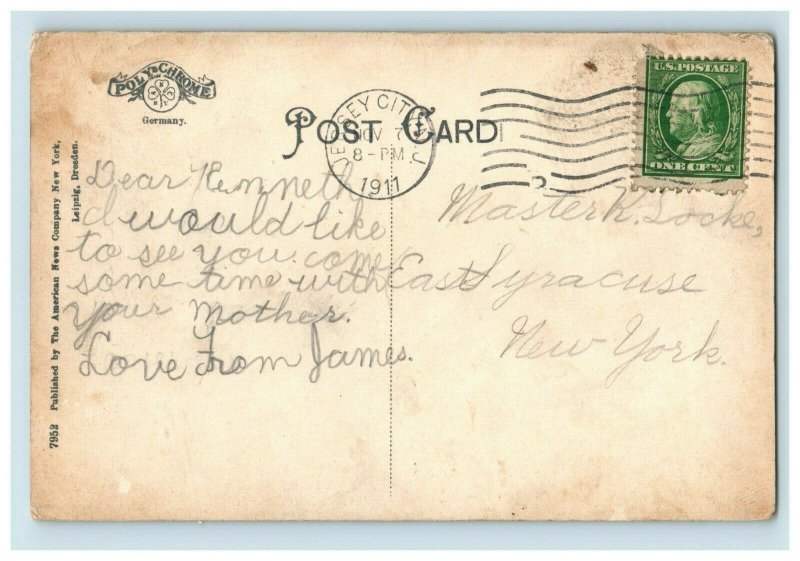 POLY-CHROME
Germany.
POST CARD
JERSEY CITY, N.J.
NOV 7
8-PM
1911
U.S. POSTAGE
ONE CENT
7952 Published by The American News Company New York,
Leipzig, Dresden.
Dear Kenneth
I would like
to see you. come
some time with
your mother.
Love from James.
Master K. Locke,
East Syracuse
New York.